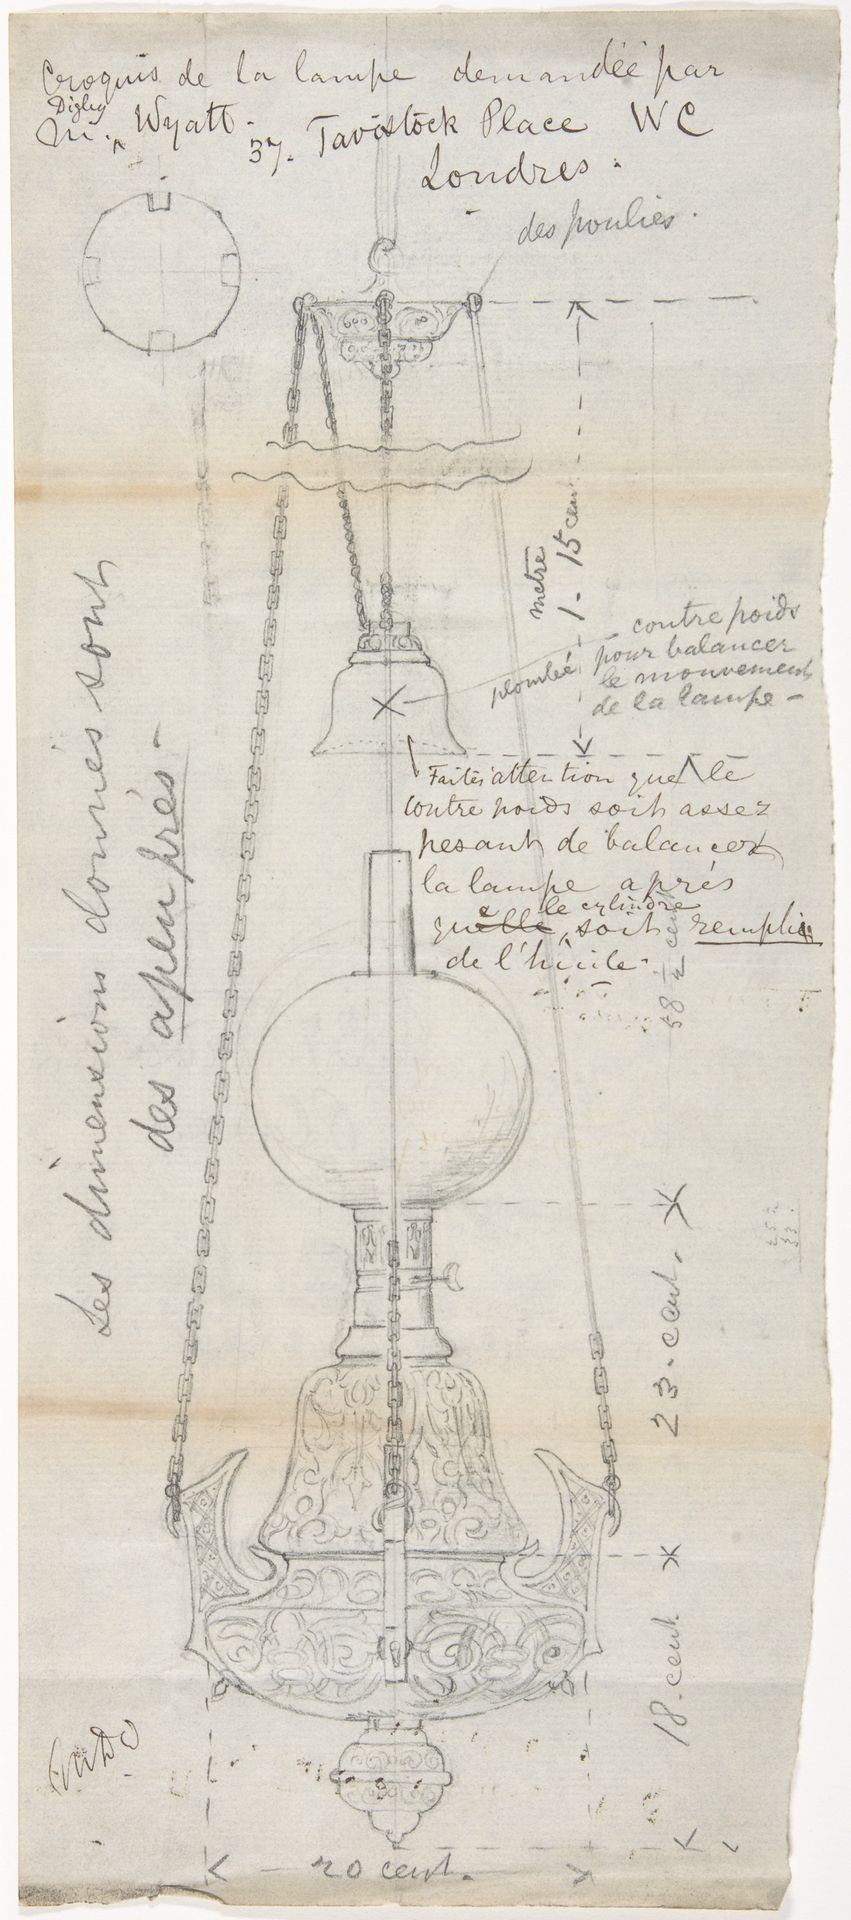 Croquis de la lampe demandée par
Digby
M. Wyatt. 37. Tavistock Place WC
Londres.
des poulies.
metre
1. 15 cent
contre poids
pour balancer
le mouvement
de la lampe -
plombée
Faites attention que le
contre poids soit assez
pesant de balancer
la lampe aprés
le cylindre
quelle, soit remplie
de l'huile.
Les dimensions donnés sont
des apeuprés -
58 1/2 cent
23. cent.
18. cent
20 cent.